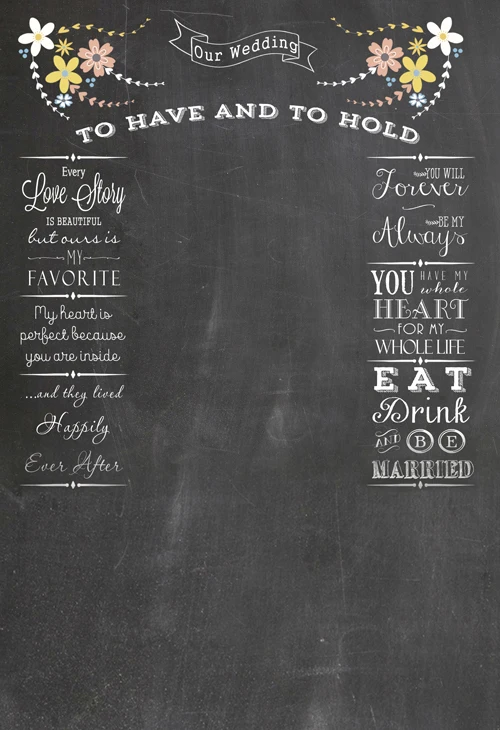 Our Wedding
TO HAVE AND TO HOLD
Every
Love Story
IS BEAUTIFUL
but ours is
MY
FAVORITE
My heart is
perfect because
you are inside
...and they lived
Happily
Ever After
YOU WILL
Forever
BE MY
Always
YOU HAVE MY
whole
HEART
FOR MY
WHOLE LIFE
EAT
Drink
AND BE
MARRIED